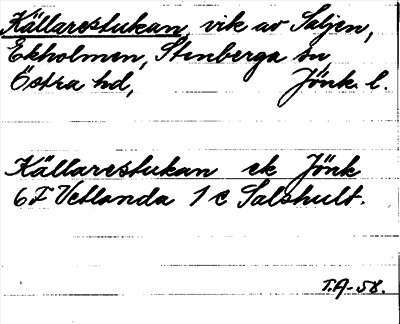 Källarestukan, vik av Saljen,
Ekholmen, Stenberga sn,
Östra hd, Jönk. l.
Källarestukan ek Jönk
6F Vetlanda 1 c Salshult.
T.A-58.